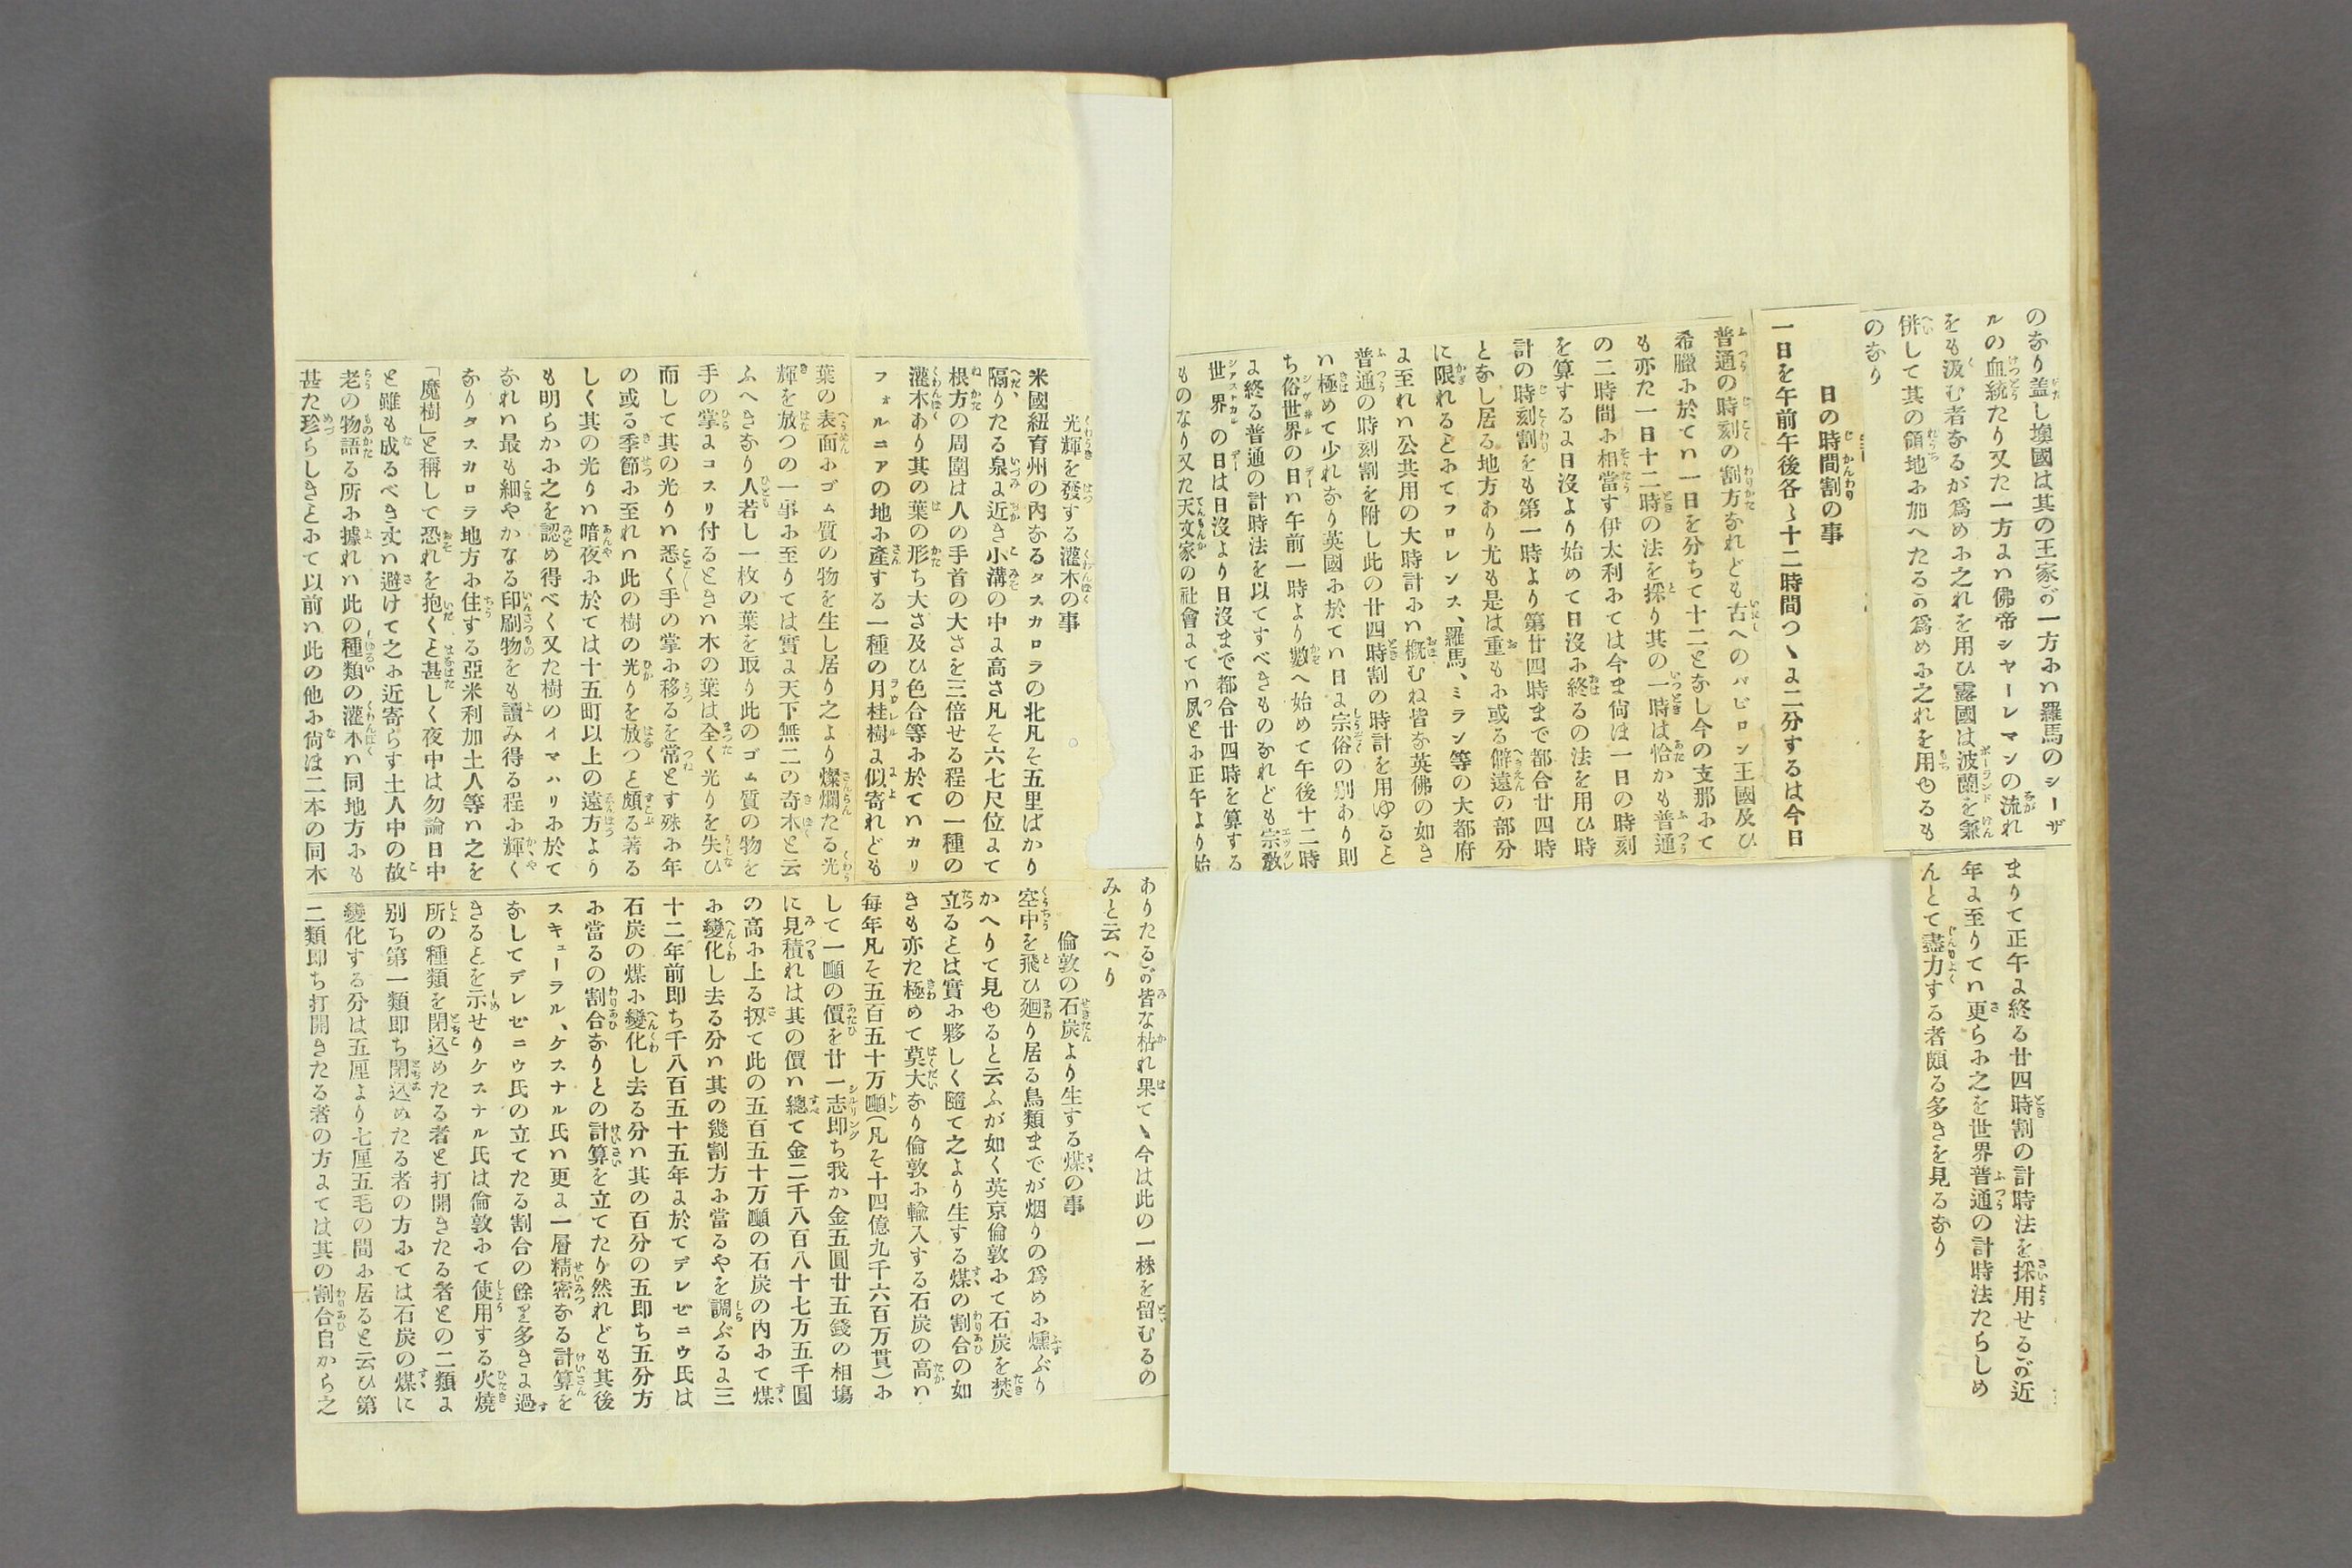 のなり盖し墺國は其の王家が一方には羅馬のシーザ
ルの血統たり又た一方には佛帝シャーレマンの流れ
をも汲む者なるが爲めに之れを用ひ露國は波蘭を兼
併して其の領地に加へたるの爲めに之れを用ゆるも
のなり
日の時間割の事
一日を午前午後各〻十二時間つゝに二分するは今日
普通の時刻の割方なれども古へのバビロン王國及ひ
希臘に於ては一日を分ちて十二となし今の支那にて
も亦た一日十二時の法を採り其の一時は恰かも普通
の二時間に相當す伊太利にては今ま尚は一日の時刻
を算するに日沒より始めて日沒に終るの法を用ひ時
計の時刻割をも第一時より第廿四時まで都合廿四時
となし居る地方あり尤も是は重もに或る僻遠の部分
に限れるとにてフロレンス、羅馬、ミラン等の大都府
に至れは公共用の大時計には概むね皆な英佛の如き
普通の時刻割を附し此の廿四時割の時計を用ゆると
は極めて少れなり英國に於ては日に宗俗の別あり則
ち俗世界の日は午前一時より數へ始めて午後十二時
に終る普通の計時法を以てすべきものなれども宗敎
世界の日は日沒より日沒まで都合廿四時を算する
ものなり又た天文家の社會にては夙とに正午より始
まりて正午に終る廿四時割の計時法を採用せるが近
年に至りては更らに之を世界普通の計時法たらしめ
んとて盡力する者頗る多きを見るなり
光輝を發する灌木の事
米國紐育州の内なるタスカロラの北凡そ五里ばかり
隔りたる泉に近き小溝の中に高さ凡そ六七尺位にて
根方の周圍は人の手首の大さを三倍せる程の一種の
灌木あり其の葉の形ち大さ及ひ色合等に於てはカリ
フォルニアの地に產する一種の月桂樹に似寄れども
葉の表面にゴム質の物を生し居り之より燦爛たる光
輝を放つの一事に至りては實に天下無二の奇木と云
ふへきなり人若し一枚の葉を取り此のゴム質の物を
手の掌にコスリ付るときは木の葉は全く光りを失ひ
而して其の光りは悉く手の掌に移るを常とす殊に年
の或る季節に至れは此の樹の光りを放つと頗る著る
しく其の光りは暗夜に於ては十五町以上の遠方より
も明らかに之を認め得べく又た樹のイマハリに於て
なれは最も細やかなる印刷物をも讀み得る程に輝く
なりタスカロラ地方に住する亞米利加土人等は之を
「魔樹」と稱して恐れを抱くと甚しく夜中は勿論日中
と雖も成るべき丈は避けて之に近寄らす土人中の故
老の物語る所に據れは此の種類の灌木は同地方にも
甚た珍らしきとにて以前は此の他に尙ほ二本の同木
ありたるが皆な枯れ果てゝ今は此の一株を留むるの
みと云へり
倫敦の石炭より生する煤の事
空中を飛ひ廻り居る鳥類までが烟りの爲めに燻ぶり
かへりて見ゆると云ふが如く英京倫敦にて石炭を焚
立るとは實に夥しく隨て之より生する煤の割合の如
きも亦た極めて莫大なり倫敦に輸入する石炭の高は
毎年凡そ五百五十万噸(凡そ十四億九千六百万貫)に
して一噸の價を廿一志即ち我か金五圓廿五錢の相塲
に見積れは其の價は總て金二千八百八十七万五千圓
の高に上る扨て此の五百五十万噸の石炭の内にて煤
に變化し去る分は其の幾割方に當るやを調ぶるに三
十二年前即ち千八百五十五年に於てデレゼニウ氏は
石炭の煤に變化し去る分は其の百分の五即ち五分方
に當るの割合なりとの計算を立てたり然れども其後
スキューラル、ケスナル氏は更に一層精密なる計算を
なしてデレゼニウ氏の立てたる割合の餘り多きに過
きるとを示せりケスナル氏は倫敦にて使用する火燒
所の種類を閉込めたる者と打開きたる者との二類に
別ち第一類即ち閉込めたる者の方にては石炭の煤に
變化する分は五厘より七厘五毛の間に居ると云ひ第
二類即ち打開きたる者の方にては其の割合自から之